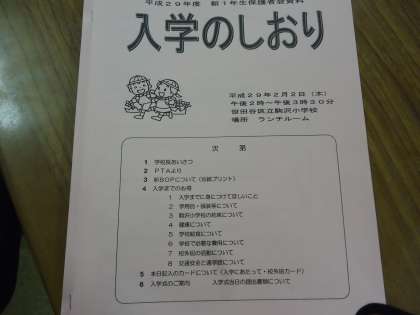 平成29年度 新1年生保護者会資料
入学のしおり
平成29年2月2日（木）
午後2時～午後3時30分
世田谷区立駒沢小学校
場所 ランチルーム
次 第
1 学校長あいさつ
2 PTAより
3 新BOPについて（別紙プリント）
4 入学までのお得
1 入学までに身につけてほしいこと
2 学用品・服装等について
3 駒沢小学校の約束について
4 健康について
5 学校給食について
6 学校で必要な費用について
7 校外班の活動について
8 交通安全と通学路について
5 本日記入のカードについて（入学にあたって・校外班カード）
6 入学式のご案内 入学式当日の提出書類について